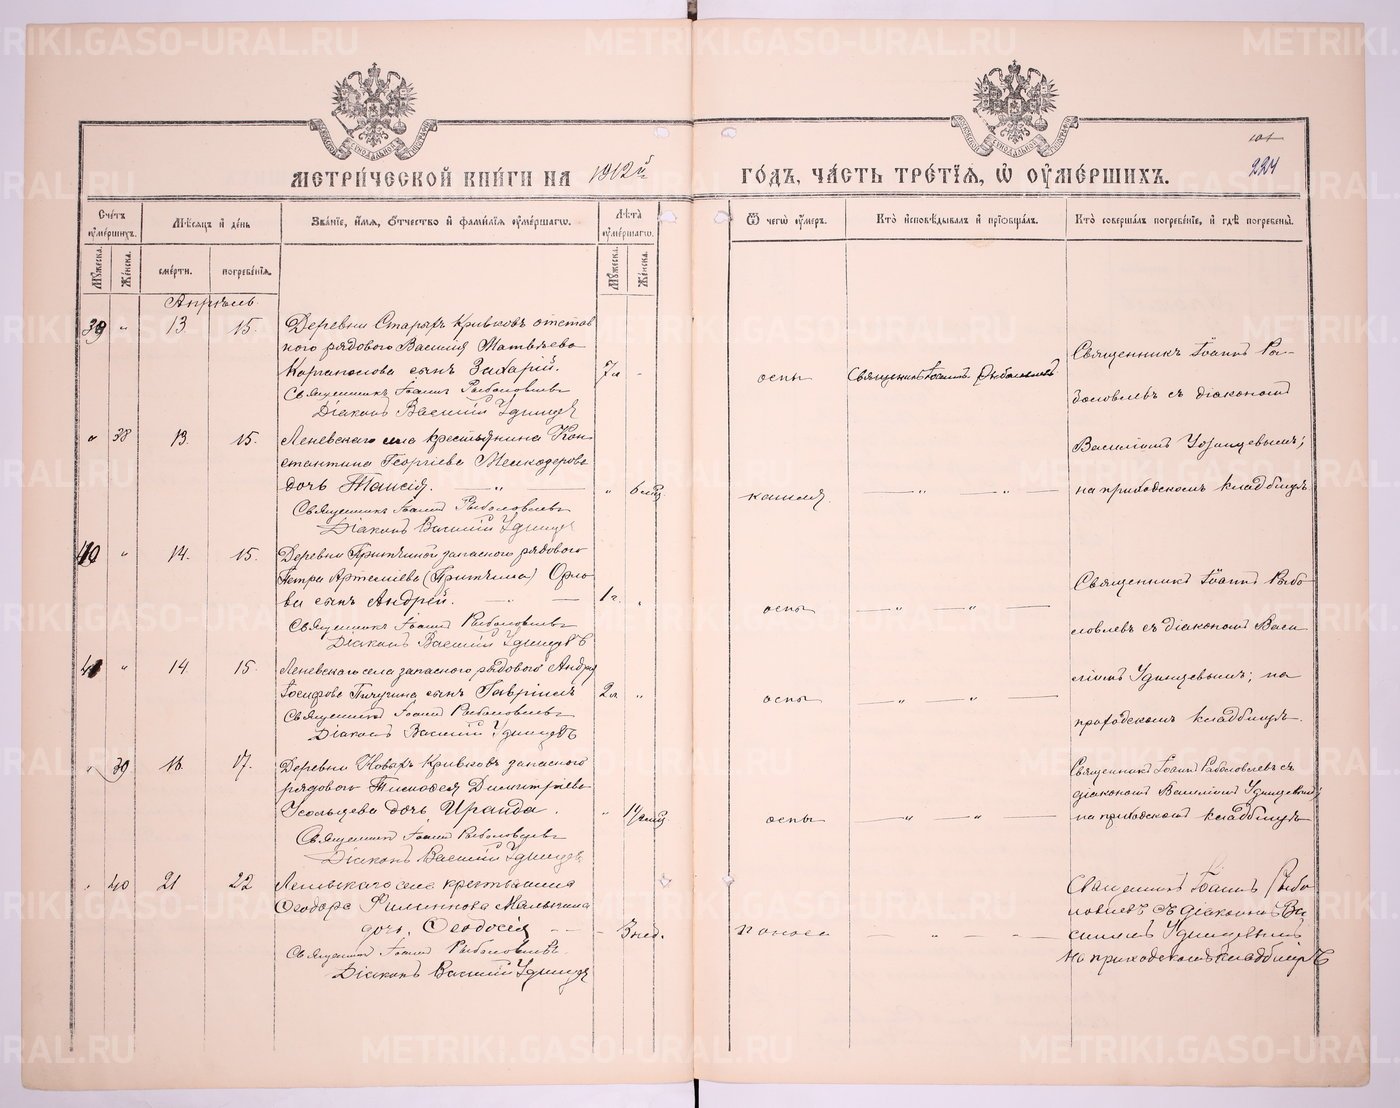 МЕТРИЧЕСКОЙ КНИГИ НА 1912й ГОДЪ, ЧАСТЬ ТРЕТІЯ, Ѡ ОУМЕРШИХЪ.
224
Счетъ оумершихъ.
Мѣсяцъ и день
Званіе, имя, отчество и фамилія оумершагѡ.
Лѣта оумершагѡ.
Ѿ чегѡ оумеръ.
Кто исповѣдывалъ и пріобщалъ.
Кто совершалъ погребеніе, и гдѣ погребены.
Мужеска.
Женска.
смерти.
погребенія.
Мужеска.
Женска.
Апрѣль.
39 " 13 15. Деревни Старыхъ Кривковъ отстав
ного рядового Василія Матвѣева
Каргаполова сынъ Захарій. 7л - оспы Священникъ Іоаннъ Рыболовлевъ
Священникъ Іоаннъ Ры-
Священникъ Іоаннъ Рыболовлевъ
боловлевъ съ діакономъ
Діаконъ Василій Удинцевъ
" 38 13. 15. Леневскаго села крестьянина Кон
Василіемъ Удинцевымъ;
стантина Георгіева
дочь Таисія. — " — " 6 мѣс кашля. — " — " —
на приходскомъ кладбищѣ
Священникъ Іоаннъ Рыболовлевъ
Діаконъ Василій Удинцевъ
40 " 14. 15. Деревни Притчиной запаснаго рядового
Петра Артеміева (Притчина) Орло
Священникъ Іоаннъ Рыбо
ва сынъ Андрей. — " — 1г. " оспы — " — " —
Священникъ Іоаннъ Рыболовлевъ
ловлевъ съ діакономъ Васи
Діаконъ Василій Удинцевъ
41 " 14 15. Леневскаго села запаснаго рядового Андрея
ліемъ Удинцевымъ; на
Іосифова Пичугина сынъ Гавріилъ 2л " оспы — " — " —
Священникъ Іоаннъ Рыболовлевъ
приходскомъ кладбищѣ.
Діаконъ Василій Удинцевъ
" 39 16. 17. Деревни Новыхъ Кривковъ запаснаго
Священникъ Іоаннъ Рыболовлевъ съ
рядового Тимофея Димитріева
діакономъ Василіемъ Удинцевымъ;
Усольцева дочь Ираида. " оспы — " — " —
на приходскомъ кладбищѣ
Священникъ Іоаннъ Рыболовлевъ
Діаконъ Василій Удинцевъ
" 40 21 22 Леневскаго села крестьянина
Священникъ Іоаннъ Рыбо
Ѳеодора Филиппова Малыгина
ловлевъ съ діакономъ Ва
дочь Ѳеодосія - - - 3 нед. поноса - " - " -
силіемъ Удинцевымъ
Священникъ Іоаннъ Рыболовлевъ.
на приходскомъ кладбищѣ
Діаконъ Василій Удинцевъ
METRIKI.GASO-URAL.RU